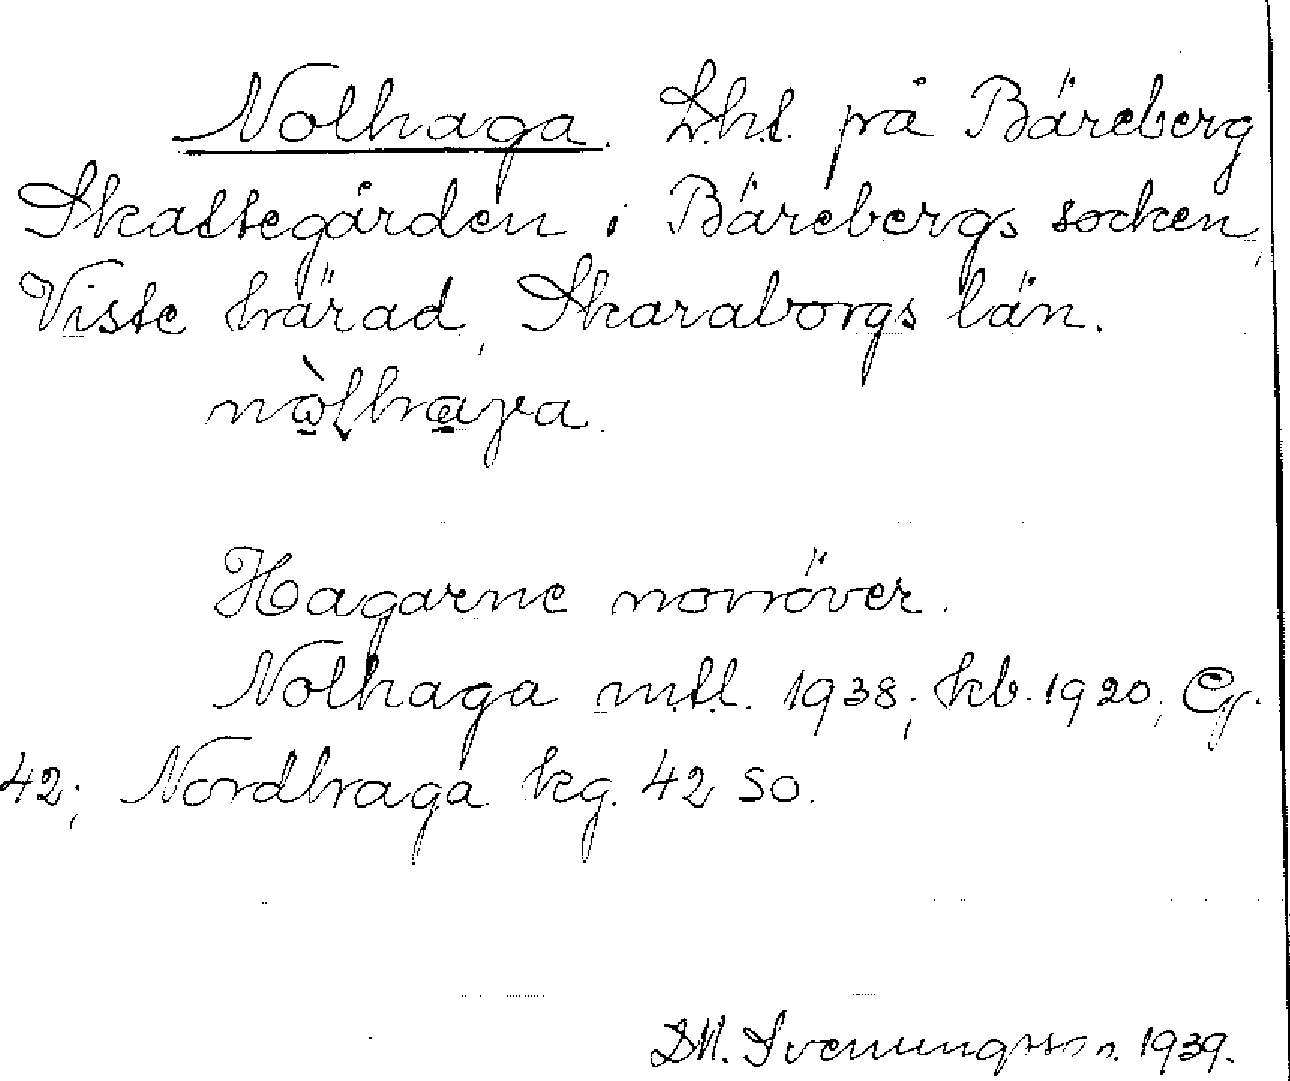 Nolhaga. Lht. på Bäreberg
Skattegården i Bärebergs socken,
Viste härad, Skaraborgs län.
Hagarne norröver.
Nolhaga mtl. 1938; kb. 1920; Eg.
42; Nordhaga kg. 42 SO.
D.M. Svenungsson. 1939.